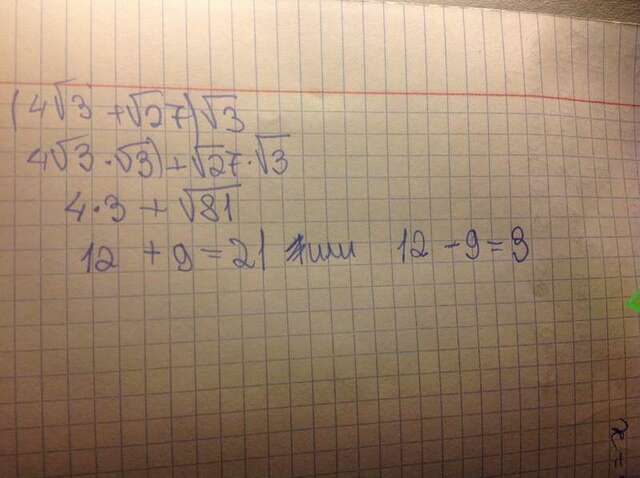 (4√3 + √27)√3
4√3 · √3) + √27 · √3
4 · 3 + √81
12 + 9 = 21 или 12 - 9 = 3
x =